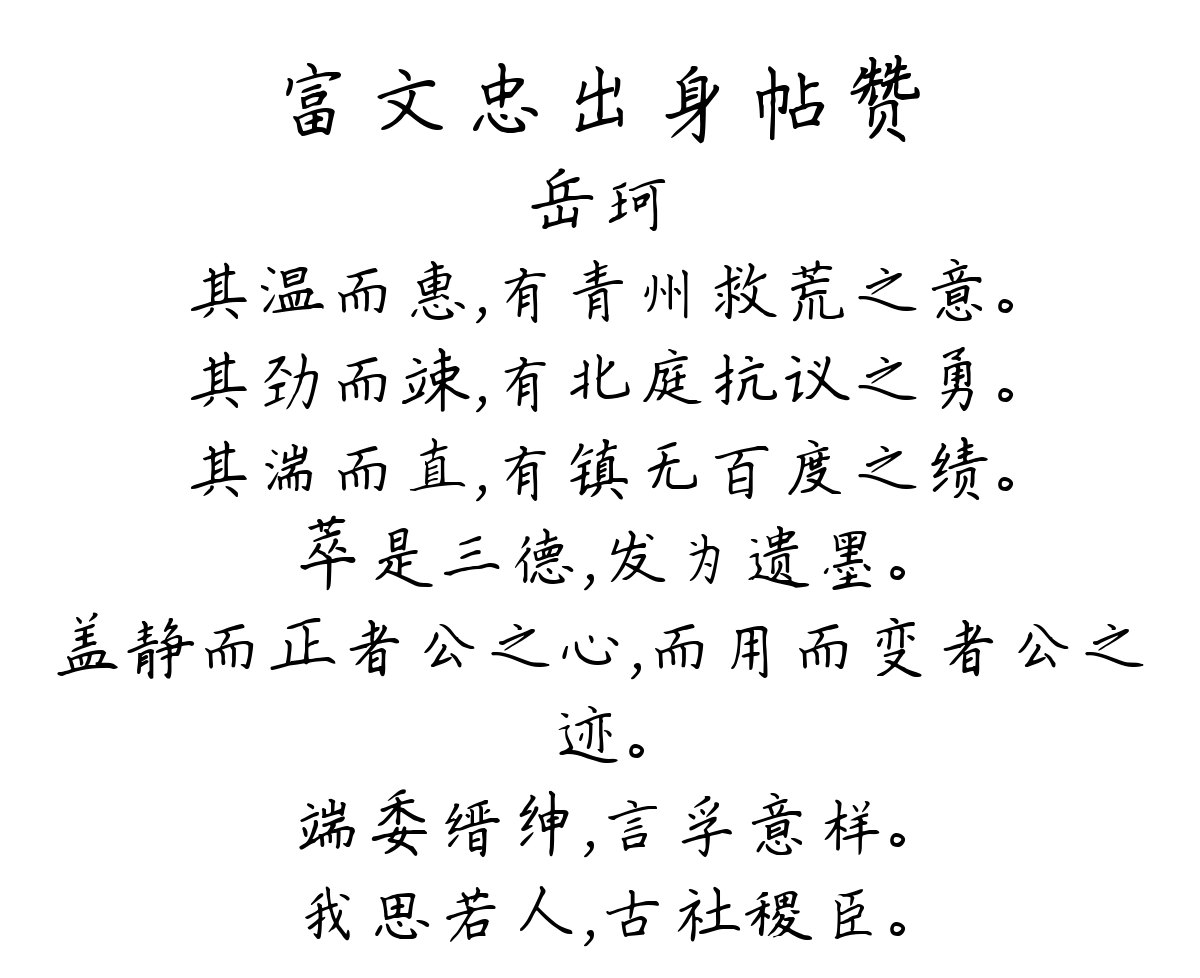 富文忠出身帖赞
岳珂
其温而惠,有青州救荒之意。
其劲而竦,有北庭抗议之勇。
其湍而直,有镇无百度之绩。
萃是三德,发为遗墨。
盖静而正者公之心,而用而变者公之
迹。
端委缙绅,言孚意样。
我思若人,古社稷臣。